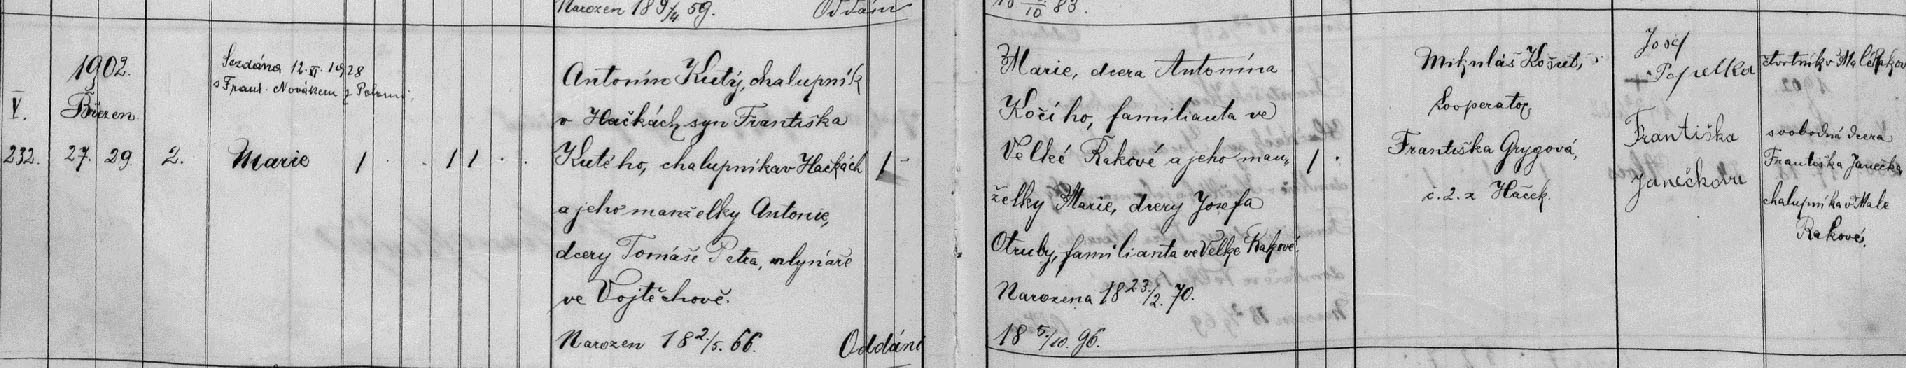 Narozen 18 9/4 59. Oddáni
10 83.
1902.
V. Březen
232. 27. 29. 2.
Sezdána 12. VI 1928
s Frant. Novákem z
Marie
Antonín Kutý, chalupník
v Hačkách syn Františka
Kutého, chalupníka v Hačkách
a jeho manželky Antonie,
dcery Tomáše Petra, mlynáře
ve Vojtěchově.
Narozen 18 2/5. 66. Oddáni
Marie, dcera Antonína
Kočího, familianta ve
Velké Rakové a jeho man„
želky Marie, dcery Josefa
Otruby, familianta ve Velké Rakové.
Narozena 18 23/2. 70.
18 5/10. 96.
Mikuláš
kooperator
Františka Grygová,
č. 2. z Haček.
Josef
+ Popelka
Františka
Janečkova
čtvrtník v Malé Rakové
svobodná dcera
Františka Janečka
chalupníka v Malé
Rakové.